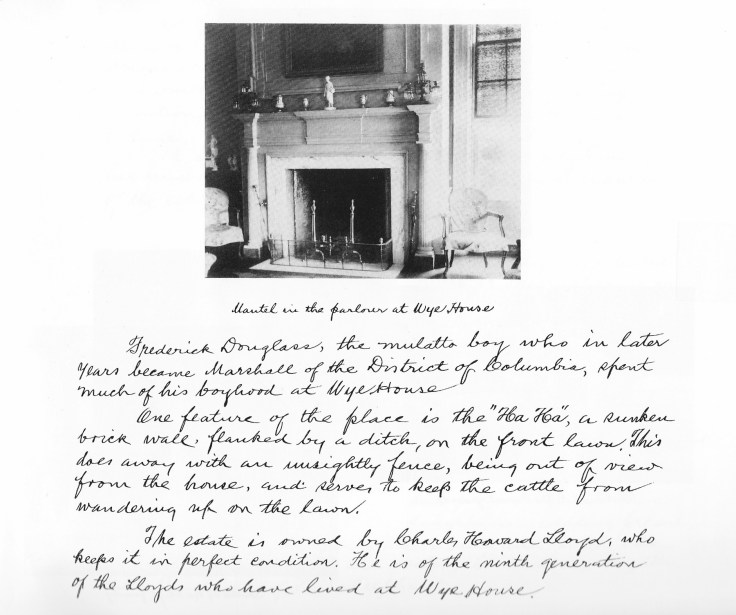 Mantel in the parlour at Wye House
Frederick Douglass, the mulatto boy who in later
years became Marshall of the District of Columbia, spent
much of his boyhood at Wye House
One feature of the place is the "Ha Ha", a sunken
brick wall, flanked by a ditch, on the front lawn. This
does away with an unsightly fence, being out of view
from the house, and serves to keep the cattle from
wandering up on the lawn.
The estate is owned by Charles Howard Lloyd, who
keeps it in perfect condition. He is of the ninth generation
of the Lloyds who have lived at Wye House.